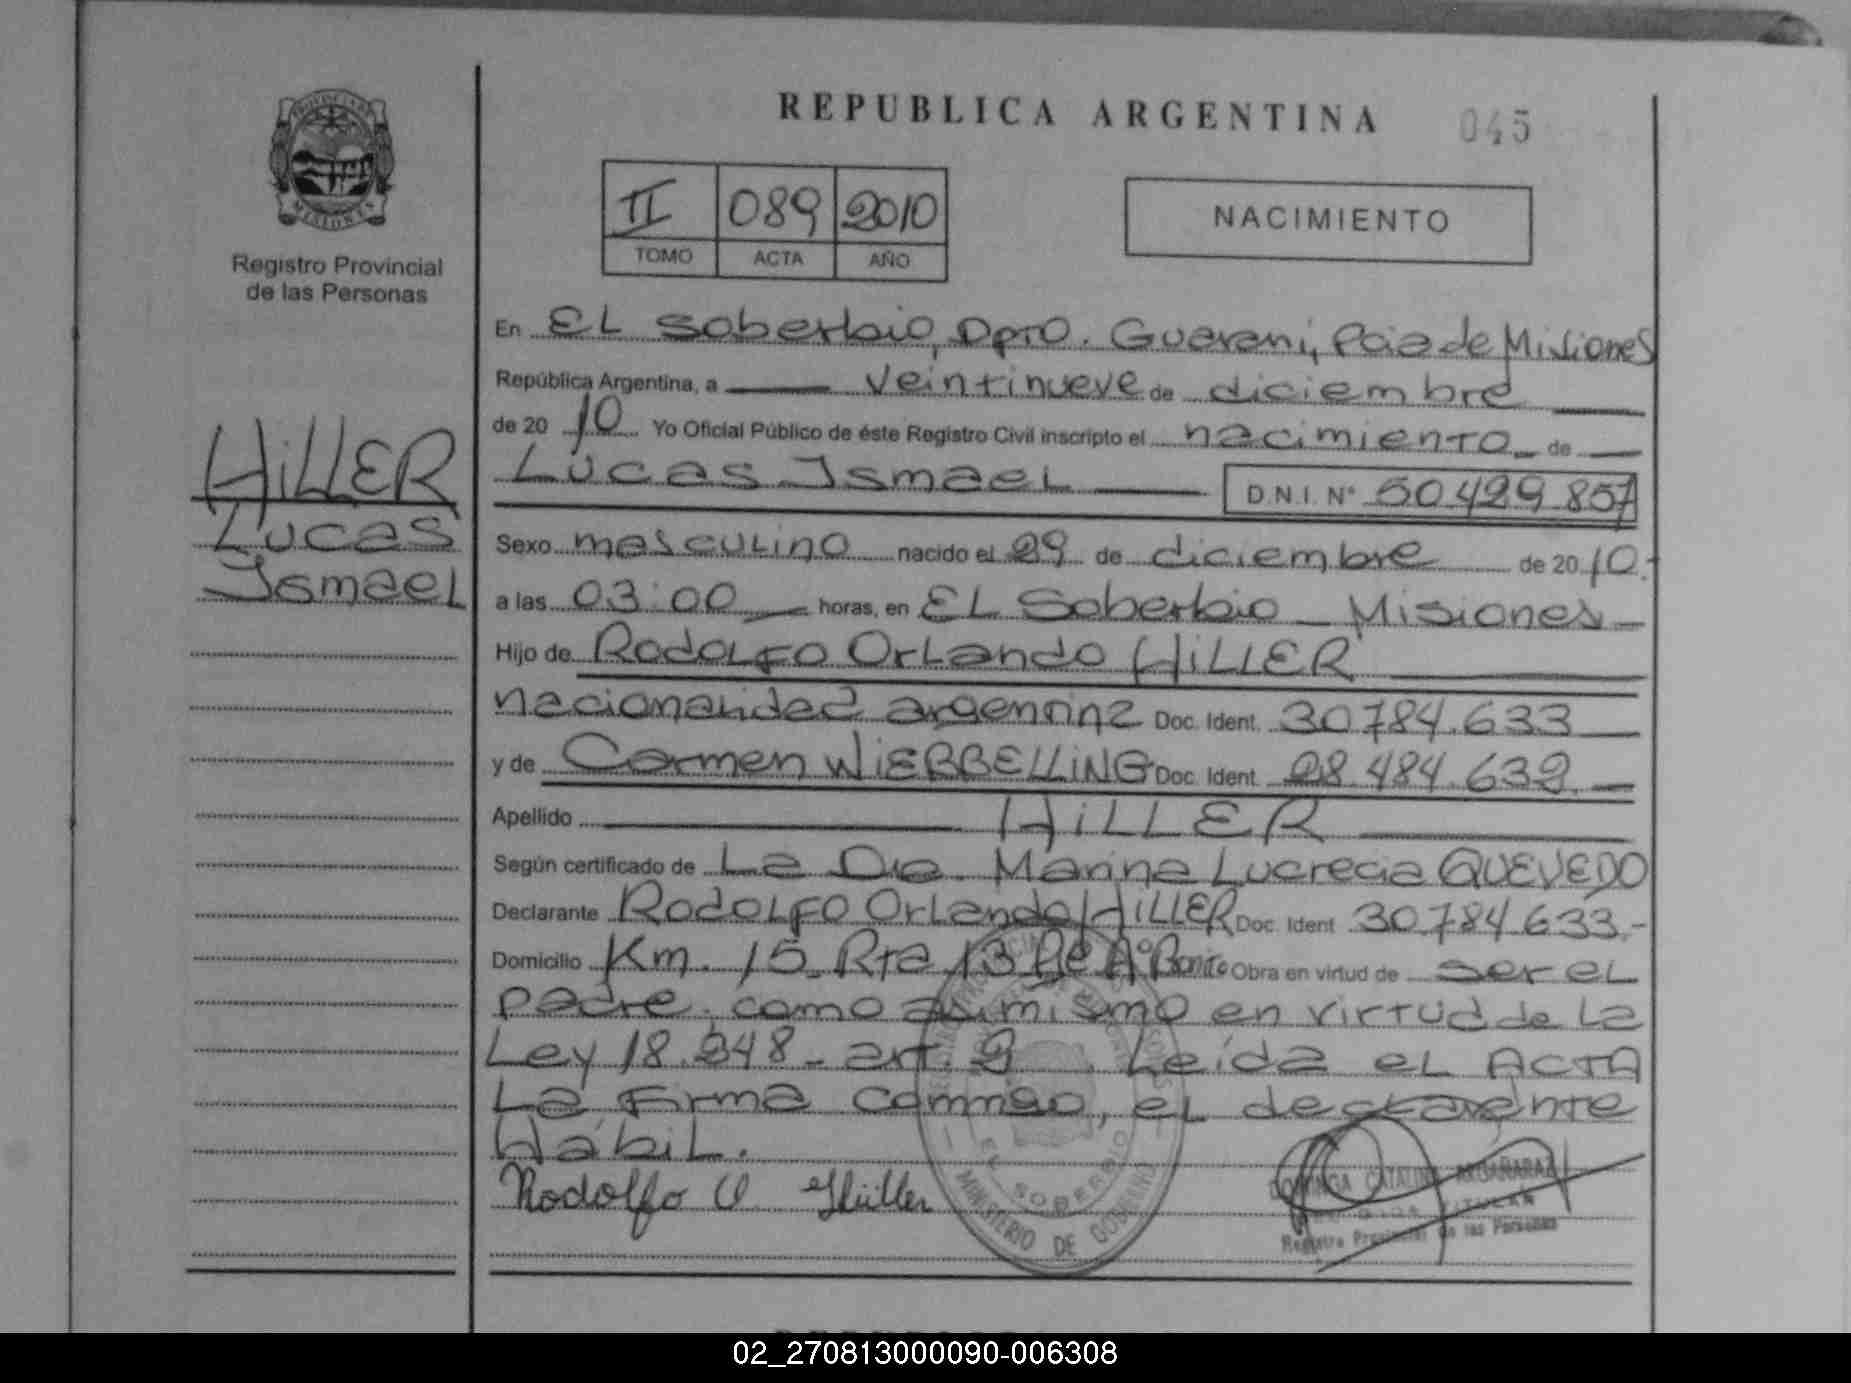 REPUBLICA ARGENTINA
045
PROVINCIA DE
MISIONES
Registro Provincial
de las Personas
II 089 2010
TOMO ACTA AÑO
NACIMIENTO
HiLLER
Lucas
Ismael
En EL Soberbio, Dpto. Guarani, Pcia de Misiones
República Argentina, a veintinueve de diciembre
de 20 10 Yo Oficial Público de éste Registro Civil inscripto el nacimiento de
Lucas Ismael D.N.I. N° 50.429.857
Sexo masculino nacido el 29 de diciembre de 20 10.-
a las 03:00 horas, en EL Soberbio - Misiones -
Hijo de Rodolfo Orlando HiLLER
nacionalidad argentina Doc. Ident. 30.784.633
y de Carmen WiERBELLiNG Doc. Ident. 28.484.632.
Apellido HiLLER
Según certificado de La Dra. Marina Lucrecia QUEVEDO
Declarante Rodolfo Orlando HiLLER Doc. Ident 30.784.633.-
Domicilio Km. 15 Rta 13 A° Bonito Obra en virtud de ser el
padre, como asimismo en virtud de la
Ley 18.248 - art. 2 Leída el ACTA
La Firma conmigo, el declarante
Hábil.
Rodolfo O. Hiller
EL SOBERBIO
MINISTERIO DE GOBIERNO
CATALINA
TITULAR
Registro Provincial de las Personas
02_270813000090-006308